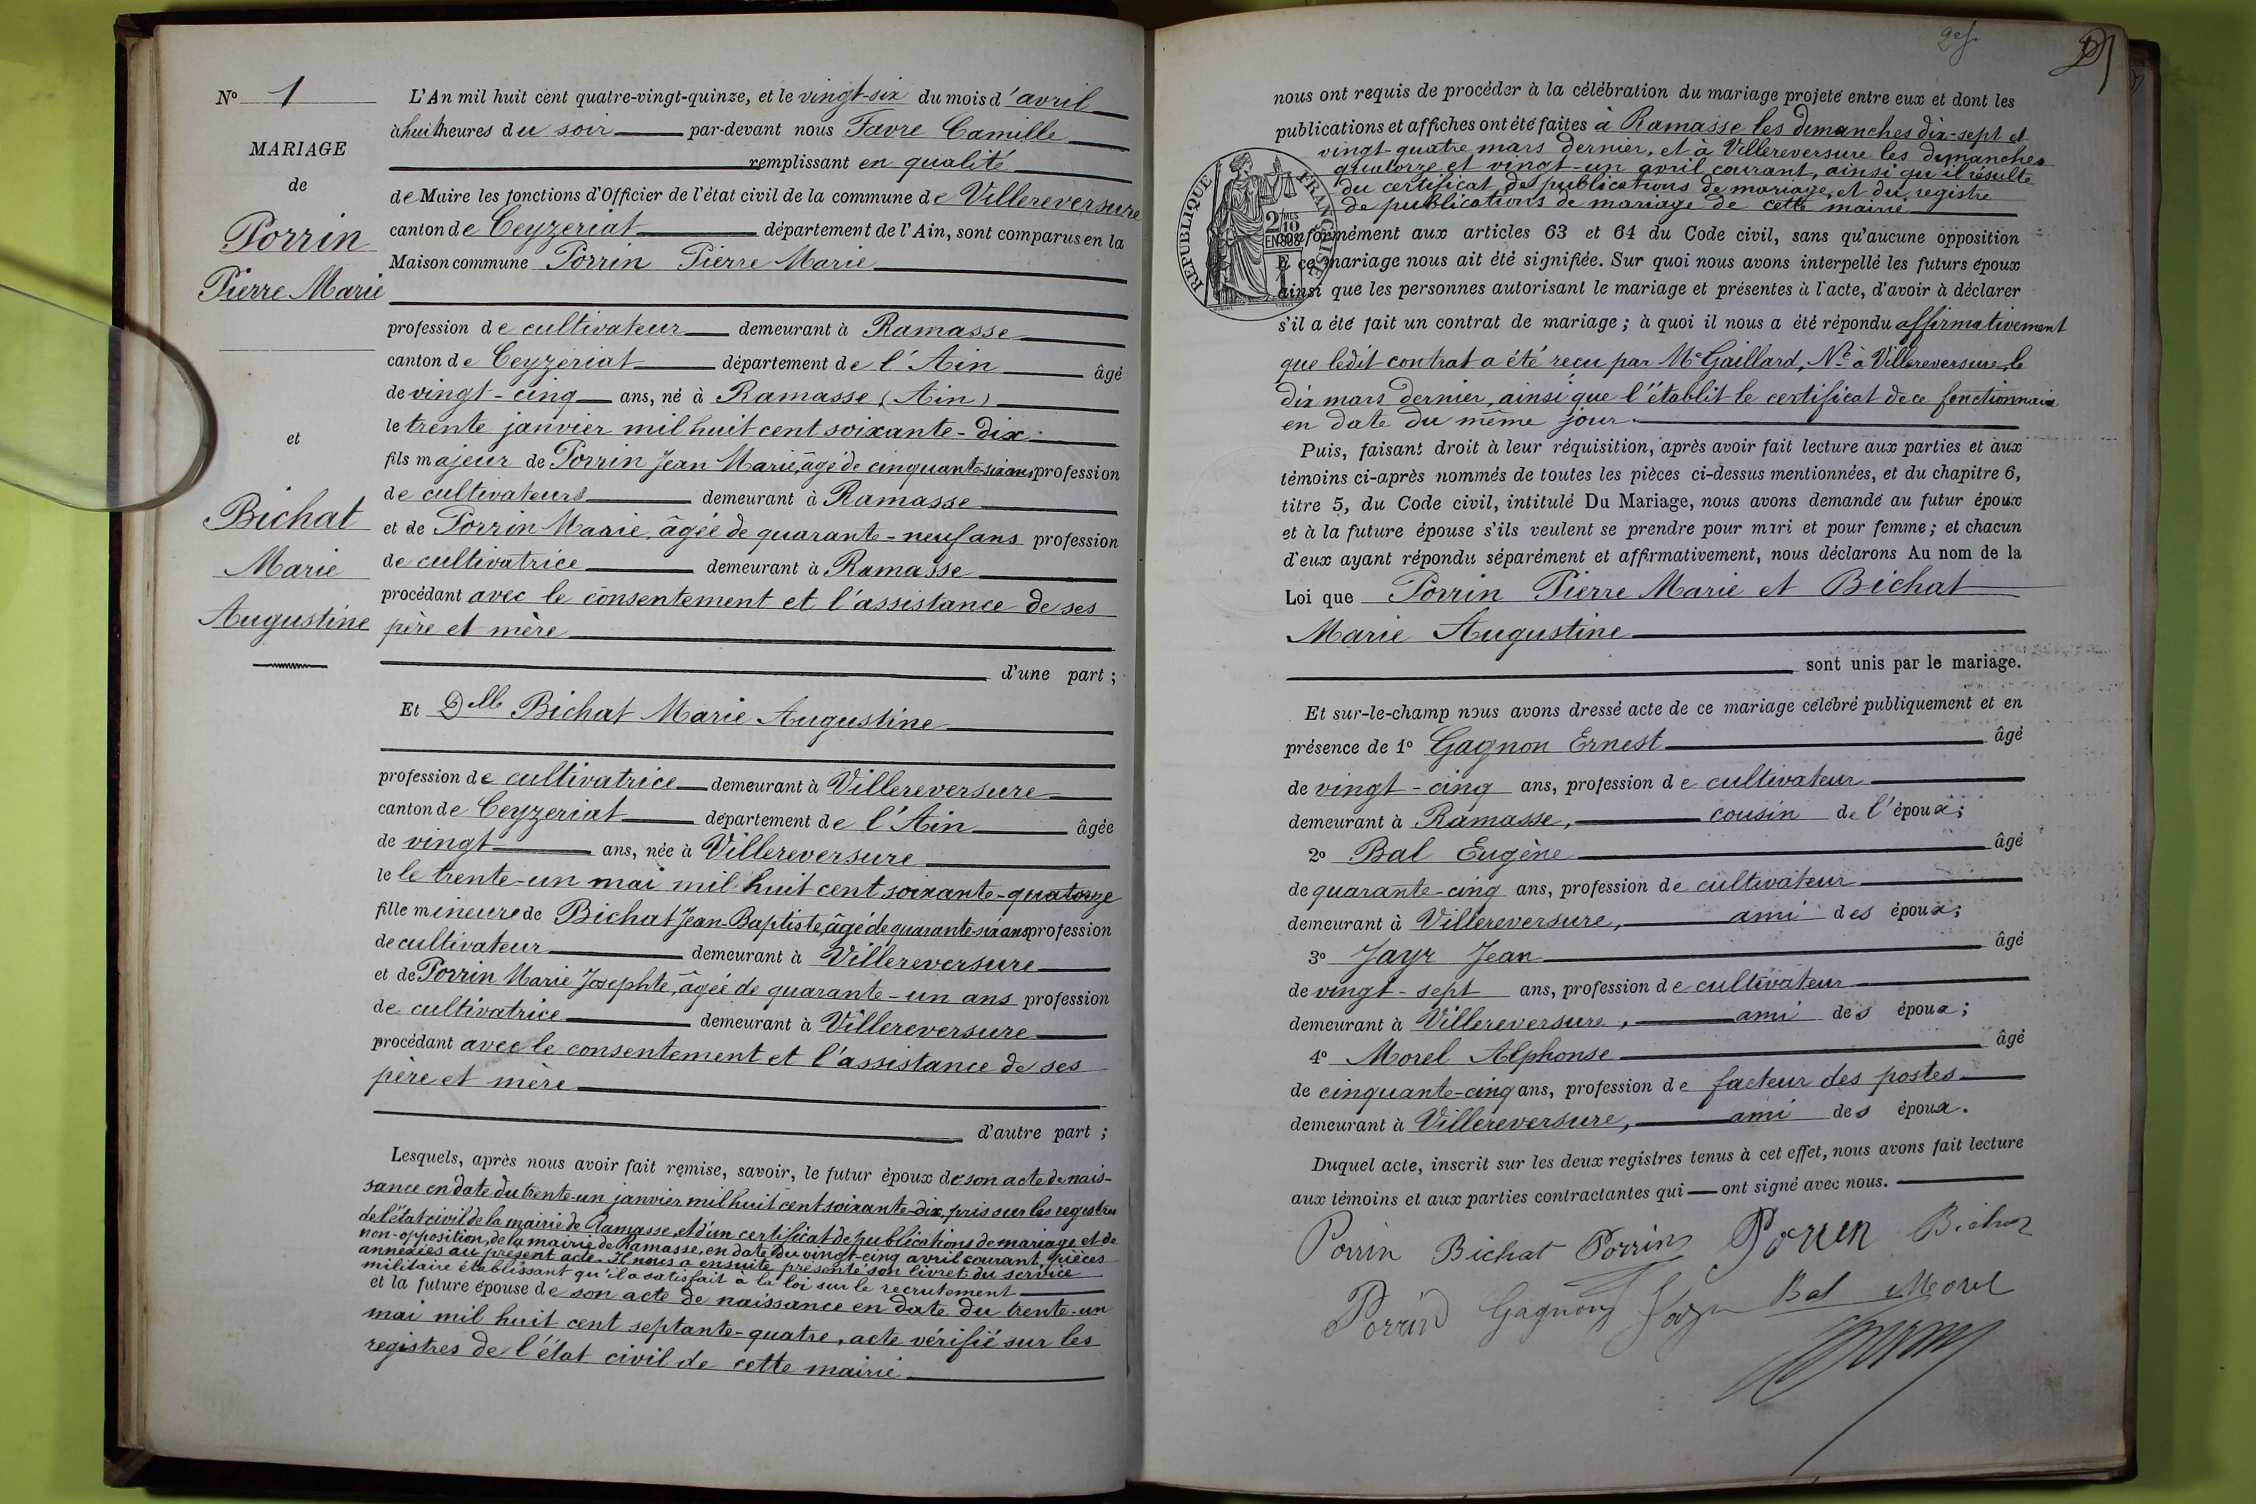 Nº 1
MARIAGE
de
Porrin
Pierre Marie
et
Bichat
Marie
Augustine
L'An mil huit cent quatre-vingt-quinze, et le vingt-six du mois d'avril
à huit heures du soir par-devant nous Favre Camille
remplissant en qualité
de Maire les fonctions d'Officier de l'état civil de la commune de Villereversure
canton de Ceyzeriat département de l'Ain, sont comparus en la
Maison commune Porrin Pierre Marie
profession de cultivateur demeurant à Ramasse
canton de Ceyzeriat département de l'Ain âgé
de vingt-cinq ans, né à Ramasse (Ain)
le trente janvier mil huit cent soixante-dix
fils majeur de Porrin Jean Marie, âgé de cinquante-six ans profession
de cultivateurs demeurant à Ramasse
et de Porrin Marie, âgée de quarante-neuf ans profession
de cultivatrice demeurant à Ramasse
procédant avec le consentement et l'assistance de ses
père et mère
d'une part ;
Et Dlle Bichat Marie Augustine
profession de cultivatrice demeurant à Villereversure
canton de Ceyzeriat département de l'Ain âgée
de vingt ans, née à Villereversure
le le trente-un mai mil huit cent soixante-quatorze
fille mineure de Bichat Jean-Baptiste, âgé de quarante-six ans profession
de cultivateur demeurant à Villereversure
et de Porrin Marie Josephte, âgée de quarante-un ans profession
de cultivatrice demeurant à Villereversure
procédant avec le consentement et l'assistance de ses
père et mère
d'autre part ;
Lesquels, après nous avoir fait remise, savoir, le futur époux de son acte de nais-
sance en date du trente-un janvier mil huit cent soixante-dix, pris sur les registres
de l'état civil de la mairie de Ramasse, et d'un certificat de publications de mariage et de
non-opposition, de la mairie de Ramasse, en date du vingt-cinq avril courant, pièces
annexées au présent acte. Il nous a ensuite présenté son livret du service
militaire établissant qu'il a satisfait à la loi sur le recrutement
et la future épouse de son acte de naissance en date du trente-un
mai mil huit cent septante-quatre, acte vérifié sur les
registres de l'état civil de cette mairie
nous ont requis de procéder à la célébration du mariage projeté entre eux et dont les
publications et affiches ont été faites à Ramasse les dimanches dix-sept et
vingt-quatre mars dernier, et à Villereversure les dimanches
quatorze et vingt-un avril courant, ainsi qu'il résulte
du certificat de publications de mariage, et du registre
de publications de mariage de cette mairie
REPUBLIQUE FRANÇAISE
2 MES
10
EN SUS
conformément aux articles 63 et 64 du Code civil, sans qu'aucune opposition
à ce mariage nous ait été signifiée. Sur quoi nous avons interpellé les futurs époux
ainsi que les personnes autorisant le mariage et présentes à l'acte, d'avoir à déclarer
s'il a été fait un contrat de mariage ; à quoi il nous a été répondu affirmativement
que ledit contrat a été reçu par Me Gaillard, Nre à Villereversure, le
dix mars dernier, ainsi que l'établit le certificat de ce fonctionnaire
en date du même jour.
Puis, faisant droit à leur réquisition, après avoir fait lecture aux parties et aux
témoins ci-après nommés de toutes les pièces ci-dessus mentionnées, et du chapitre 6,
titre 5, du Code civil, intitulé Du Mariage, nous avons demandé au futur époux
et à la future épouse s'ils veulent se prendre pour mari et pour femme ; et chacun
d'eux ayant répondu séparément et affirmativement, nous déclarons Au nom de la
Loi que Porrin Pierre Marie et Bichat
Marie Augustine
sont unis par le mariage.
Et sur-le-champ nous avons dressé acte de ce mariage célébré publiquement et en
présence de 1º Gagnon Ernest âgé
de vingt-cinq ans, profession de cultivateur
demeurant à Ramasse, cousin de l'époux ;
2º Bal Eugène âgé
de quarante-cinq ans, profession de cultivateur
demeurant à Villereversure, ami des époux ;
3º Jayr Jean âgé
de vingt-sept ans, profession de cultivateur
demeurant à Villereversure, ami des époux ;
4º Morel Alphonse âgé
de cinquante-cinq ans, profession de facteur des postes
demeurant à Villereversure, ami des époux.
Duquel acte, inscrit sur les deux registres tenus à cet effet, nous avons fait lecture
aux témoins et aux parties contractantes qui ont signé avec nous.
Porrin Bichat Porrin Porren Bichat
Porrin Gagnon Jayr Bal Morel